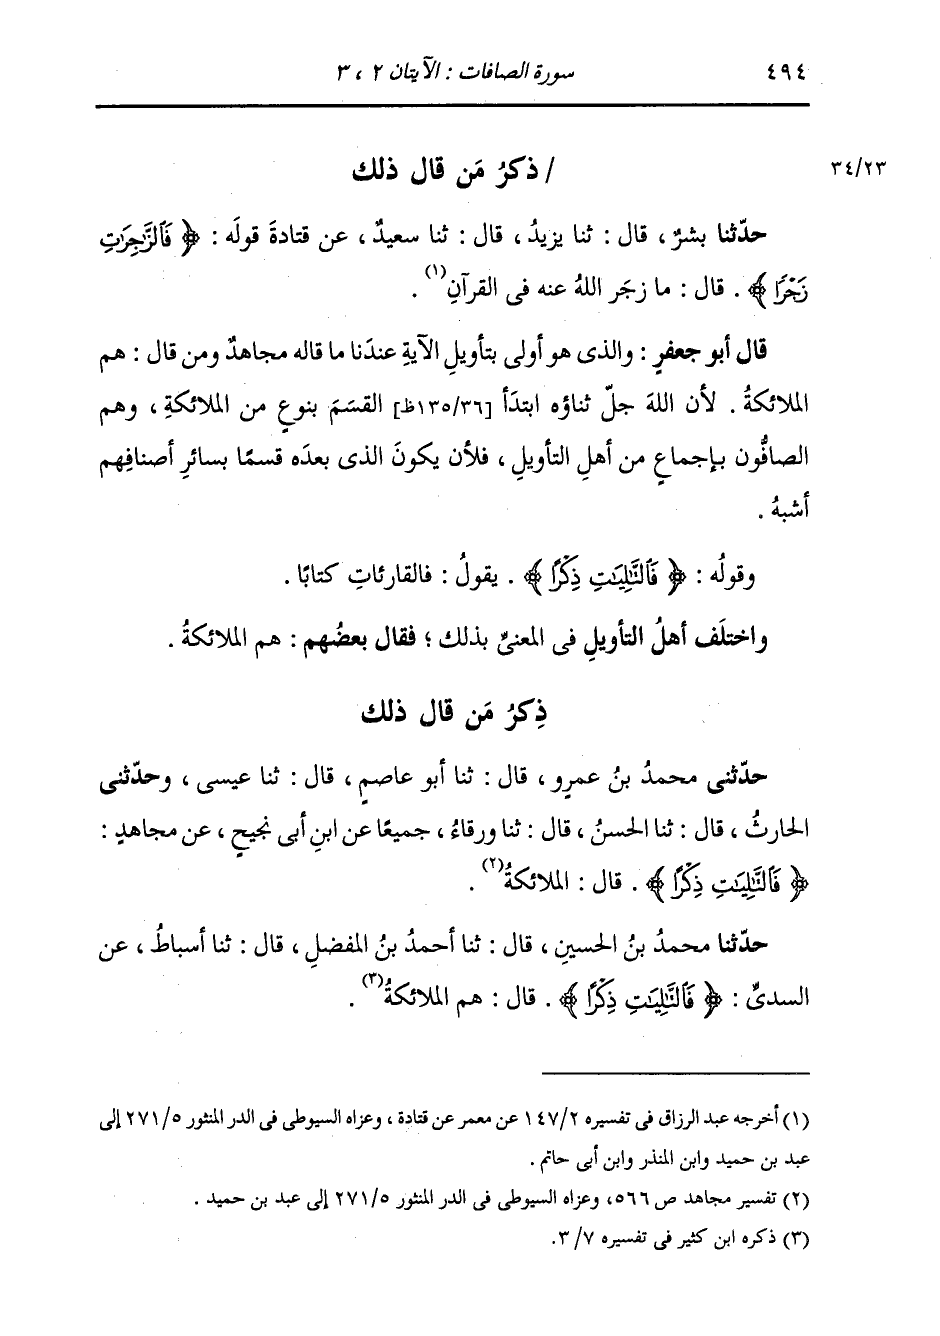 ٤٩٤ سورة الصافات : الآيتان ٢ ، ٣
٣٤/٢٣ / ذكرُ مَن قال ذلك
حدّثنا بشرٌ ، قال : ثنا يزيدُ ، قال : ثنا سعيدٌ ، عن قتادةَ قولَه : ﴿ فَٱلزَّٰجِرَٰتِ
زَجْرًا ﴾ . قال : ما زجَر اللهُ عنه فى القرآنِ(١) .
قال أبو جعفرٍ : والذى هو أولى بتأويلِ الآيةِ عندَنا ما قاله مجاهدٌ ومن قال : هم
الملائكةُ . لأن اللهَ جلّ ثناؤه ابتدَأ [١٣٥/٣٦ظ] القسَمَ بنوعٍ من الملائكةِ ، وهم
الصافُّون بإجماعٍ من أهلِ التأويلِ ، فلأن يكونَ الذى بعدَه قسمًا بسائرِ أصنافِهم
أشبهُ .
وقولُه : ﴿ فَٱلتَّٰلِيَٰتِ ذِكْرًا ﴾ . يقولُ : فالقارئاتِ كتابًا .
واختلَف أهلُ التأويلِ فى المعنىِّ بذلك ؛ فقال بعضُهم : هم الملائكةُ .
ذِكرُ مَن قال ذلك
حدّثنى محمدُ بنُ عمرٍو ، قال : ثنا أبو عاصمٍ ، قال : ثنا عيسى ، وحدّثنى
الحارثُ ، قال : ثنا الحسنُ ، قال : ثنا ورقاءُ ، جميعًا عن ابنِ أبى نجيحٍ ، عن مجاهدٍ :
﴿ فَٱلتَّٰلِيَٰتِ ذِكْرًا ﴾ . قال : الملائكةُ(٢) .
حدّثنا محمدُ بنُ الحسينِ ، قال : ثنا أحمدُ بنُ المفضلِ ، قال : ثنا أسباطُ ، عن
السدىِّ : ﴿ فَٱلتَّٰلِيَٰتِ ذِكْرًا ﴾ . قال : هم الملائكةُ(٣) .
(١) أخرجه عبد الرزاق فى تفسيره ١٤٧/٢ عن معمر عن قتادة ، وعزاه السيوطى فى الدر المنثور ٢٧١/٥ إلى
عبد بن حميد وابن المنذر وابن أبى حاتم .
(٢) تفسير مجاهد ص ٥٦٦، وعزاه السيوطى فى الدر المنثور ٢٧١/٥ إلى عبد بن حميد .
(٣) ذكره ابن كثير فى تفسيره ٣/٧.